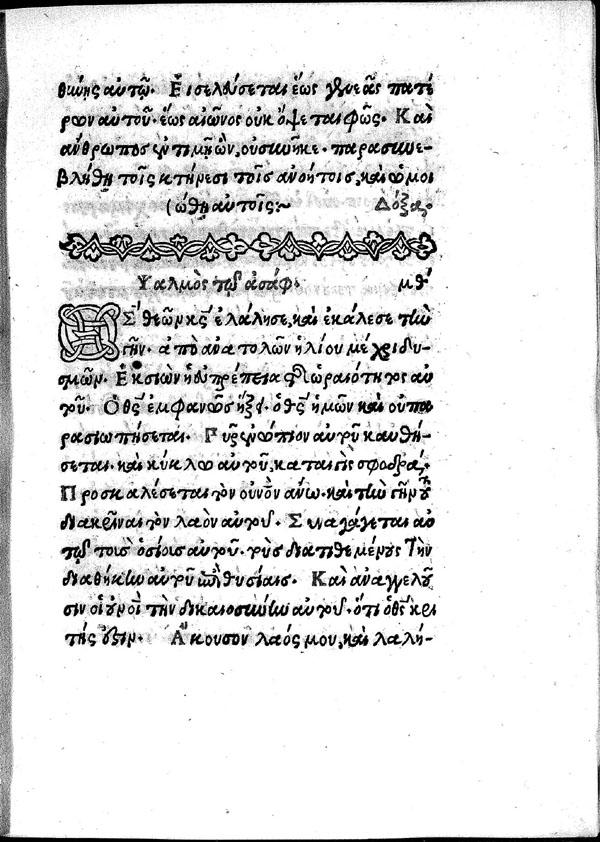 θύνης αὐτῷ. Εἰσελεύσεται ἕως γενεᾶς πατέ
ρων αὐτοῦ· ἕως αἰῶνος οὐκ ὄψεται φῶς. Καὶ
ἄνθρωπος ἐν τιμῇ ὢν, οὐ συνῆκε· παρασυνε-
βλήθη τοῖς κτήνεσι τοῖς ἀνοήτοις, καὶ ὡμοι
ώθη αὐτοῖς:~ Δόξα.
Ψαλμὸς τῷ ἀσάφ. μθʹ
Θεὸς θεῶν κς̄ ἐλάλησε, καὶ ἐκάλεσε τὴν
γῆν· ἀπὸ ἀνατολῶν ἡλίου μέχρι δυ-
σμῶν. Ἐκ σιὼν ἡ εὐπρέπεια τῆς ὡραιότητος αὐ
τοῦ. Ὁ θς̄ ἐμφανῶς ἥξει· ὁ θς̄ ἡμῶν καὶ οὐ πα
ρασιωπήσεται. Πῦρ ἐνώπιον αὐτοῦ καυθή-
σεται· καὶ κύκλω αὐτοῦ, καταιγὶς σφοδρά.
Προσκαλέσεται τὸν οὐνὸν ἄνω· καὶ τὴν γῆν τοῦ
διακρῖναι τὸν λαὸν αὐτοῦ. Συναγάγεται αὐ
τῷ τοὺς ὁσίους αὐτοῦ· τοὺς διατιθεμένους τὴν
διαθήκην αὐτοῦ ἐπὶ θυσίαις. Καὶ ἀναγγελοῦ
σιν οἱ οὐνοὶ τὴν δικαιοσύνην αὐτοῦ· ὅτι ὁ θς̄ κρι
τής ἐστιν. Ἄκουσον λαός μου, καὶ λαλή-